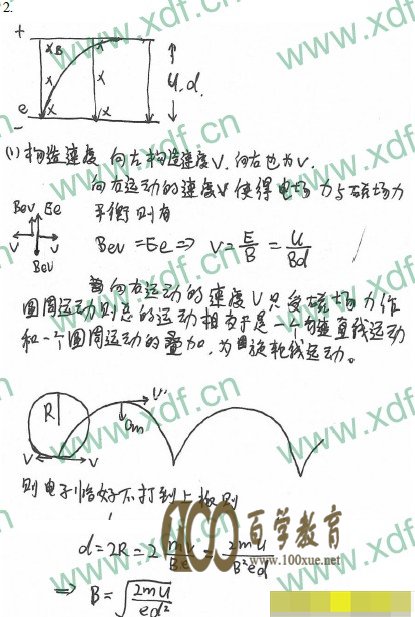 2.
+
B
U.d.
e
−
(1) 构造速度 向左构造速度V,向右也为V,
向右运动的速度V使得电场力与磁场力
平衡则有
Bev Ee
V V
Bev
Bev = Ee ⇒ V = E/B = U/Bd
向右运动的速度V只受磁场力作
圆周运动则总的运动相当于是一个匀速直线运动
和一个圆周运动的叠加,为旋轮线运动。
R
V V
则电子恰好不打到上板则
d = 2R = 2 = 2mU/B²ed
⇒ B = √(2mU/ed²)
100 百学教育
www.100xue.net
www.xdf.cn